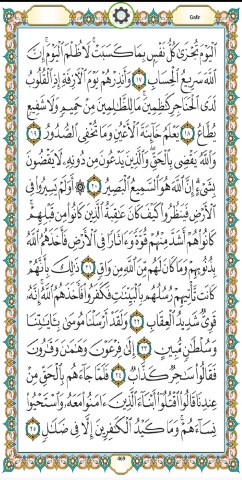 Gafir
ٱلْيَوْمَ تُجْزَىٰ كُلُّ نَفْسٍۭ بِمَا كَسَبَتْ ۚ لَا ظُلْمَ ٱلْيَوْمَ ۚ إِنَّ
ٱللَّهَ سَرِيعُ ٱلْحِسَابِ ١٧ وَأَنذِرْهُمْ يَوْمَ ٱلْـَٔازِفَةِ إِذِ ٱلْقُلُوبُ
لَدَى ٱلْحَنَاجِرِ كَـٰظِمِينَ ۚ مَا لِلظَّـٰلِمِينَ مِنْ حَمِيمٍ وَلَا شَفِيعٍ
يُطَاعُ ١٨ يَعْلَمُ خَآئِنَةَ ٱلْأَعْيُنِ وَمَا تُخْفِى ٱلصُّدُورُ ١٩
وَٱللَّهُ يَقْضِى بِٱلْحَقِّ ۖ وَٱلَّذِينَ يَدْعُونَ مِن دُونِهِۦ لَا يَقْضُونَ
بِشَىْءٍ ۗ إِنَّ ٱللَّهَ هُوَ ٱلسَّمِيعُ ٱلْبَصِيرُ ٢٠ ۞ أَوَلَمْ يَسِيرُوا۟ فِى
ٱلْأَرْضِ فَيَنظُرُوا۟ كَيْفَ كَانَ عَـٰقِبَةُ ٱلَّذِينَ كَانُوا۟ مِن قَبْلِهِمْ ۚ
كَانُوا۟ هُمْ أَشَدَّ مِنْهُمْ قُوَّةً وَءَاثَارًا فِى ٱلْأَرْضِ فَأَخَذَهُمُ ٱللَّهُ
بِذُنُوبِهِمْ وَمَا كَانَ لَهُم مِّنَ ٱللَّهِ مِن وَاقٍ ٢١ ذَٰلِكَ بِأَنَّهُمْ
كَانَت تَّأْتِيهِمْ رُسُلُهُم بِٱلْبَيِّنَـٰتِ فَكَفَرُوا۟ فَأَخَذَهُمُ ٱللَّهُ ۚ إِنَّهُۥ
قَوِىٌّ شَدِيدُ ٱلْعِقَابِ ٢٢ وَلَقَدْ أَرْسَلْنَا مُوسَىٰ بِـَٔايَـٰتِنَا
وَسُلْطَـٰنٍ مُّبِينٍ ٢٣ إِلَىٰ فِرْعَوْنَ وَهَـٰمَـٰنَ وَقَـٰرُونَ
فَقَالُوا۟ سَـٰحِرٌ كَذَّابٌ ٢٤ فَلَمَّا جَآءَهُم بِٱلْحَقِّ مِنْ
عِندِنَا قَالُوا۟ ٱقْتُلُوٓا۟ أَبْنَآءَ ٱلَّذِينَ ءَامَنُوا۟ مَعَهُۥ وَٱسْتَحْيُوا۟
نِسَآءَهُمْ ۚ وَمَا كَيْدُ ٱلْكَـٰفِرِينَ إِلَّا فِى ضَلَـٰلٍ ٢٥
469